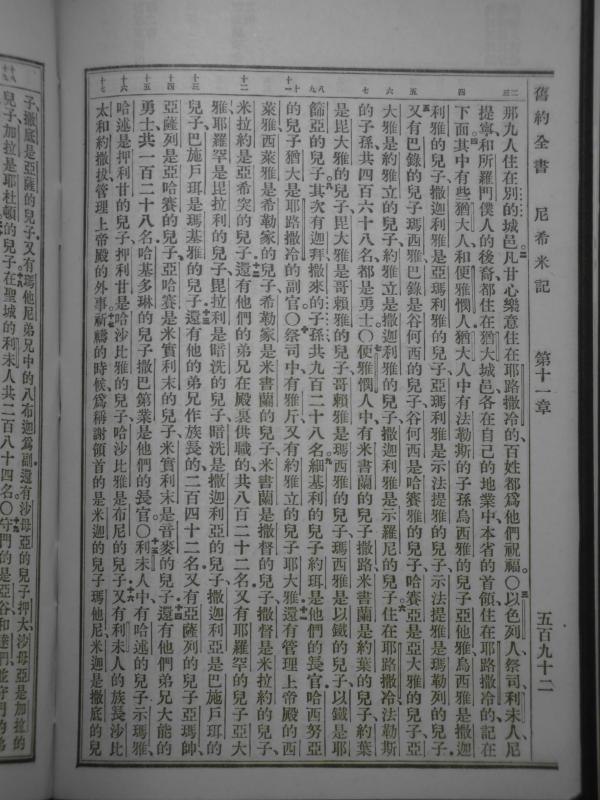 舊約全書　尼希米記　第十一章　五百九十二
那九人住在別的城邑凡甘心樂意住在耶路撒冷的百姓都爲他們祝福〇以色列人祭司利未人尼
提寧和所羅門僕人的後裔都住在猶大城邑各在自己的地業中本省的首領住在耶路撒冷的記在
下面其中有些猶大人和便雅憫人猶大人中有法勒斯的子孫烏西雅的兒子亞他雅烏西雅是撒迦
利雅的兒子撒迦利雅是亞瑪利雅的兒子亞瑪利雅是示法提雅的兒子示法提雅是瑪勒列的兒子
又有巴錄的兒子瑪西雅巴錄是谷何西的兒子谷何西是哈賽雅的兒子哈賽亞是亞大雅的兒子亞
大雅是約雅立的兒子約雅立是撒迦利雅的兒子撒迦利雅是示羅尼的兒子住在耶路撒冷法勒斯
的子孫共四百六十八名都是勇士〇便雅憫人中有米書蘭的兒子撒路米書蘭是約葉的兒子約葉
是毘大雅的兒子毘大雅是哥賴雅的兒子哥賴雅是瑪西雅的兒子瑪西雅是以鐵的兒子以鐵是耶
篩亞的兒子其次有迦拜撒來的子孫共九百二十八名細基利的兒子約珥是他們的長官哈西努亞
的兒子猶大是耶路撒冷的副官〇祭司中有雅斤又有約雅立的兒子耶大雅還有管理上帝殿的西
萊雅西萊雅是希勒家的兒子希勒家是米書蘭的兒子米書蘭是撒督的兒子撒督是米拉約的兒子
米拉約是亞希突的兒子還有他們的弟兄在殿裏供職的共八百二十二名又有耶羅罕的兒子亞大
雅耶羅罕是毘拉利的兒子毘拉利是暗洗的兒子暗洗是撒迦利亞的兒子撒迦利亞是巴施戶珥的
兒子巴施戶珥是瑪基雅的兒子還有他的弟兄作族長的二百四十二名又有亞薩列的兒子亞瑪帥
亞薩列是亞哈賽的兒子亞哈賽是米實利末的兒子米實利末是音麥的兒子還有他們弟兄大能的
勇士共一百二十八名哈基多琳的兒子撒巴第業是他們的長官〇利未人中有哈述的兒子示瑪雅
哈述是押利甘的兒子押利甘是哈沙比雅的兒子哈沙比雅是布尼的兒子又有利未人的族長沙比
太和約撒拔管理上帝殿的外事祈禱的時候爲稱謝領首的是米迦的兒子瑪他尼米迦是撒底的兒
子撒底是亞薩的兒子又有瑪他尼弟兄中的八布迦爲副還有沙母亞的兒子押大沙母亞是加拉的
兒子加拉是耶杜頓的兒子在聖城的利未人共二百八十四名〇守門的是亞谷和達們並守門的弟